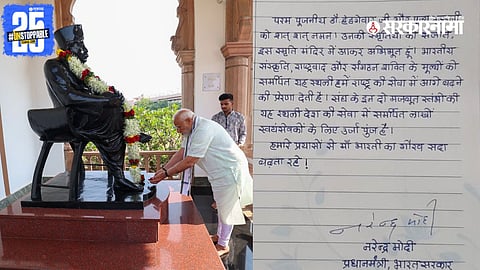 25
#UNSTOPPABLE
सरकारनामा
परम पूजनीय डॉ हेडगेवार जी और पूज्य गुरुजी
को शत् शत् नमन। उनकी स्मृतियों को संजोते,
इस स्मृति मंदिर में आकर अभिभूत हूं। भारतीय
संस्कृति, राष्ट्रवाद और संगठन शक्ति के मूल्यों को
समर्पित यह स्थली हमें राष्ट्र की सेवा में आगे बढ़ने
की प्रेरणा देती है। संघ के इन दो मजबूत स्तंभों की
यह स्थली देश की सेवा में समर्पित लाखों
स्वयंसेवकों के लिए ऊर्जा पुंज है।
हमारे प्रयासों से माँ भारती का गौरव सदा
बढ़ता रहे!
नरेन्द्र मोदी
नरेन्द्र मोदी
प्रधानमंत्री, भारत सरकार